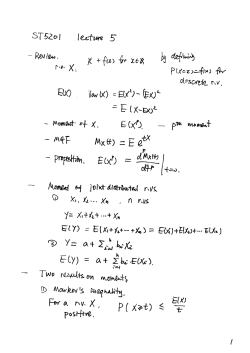 ST5201 lecture 5
- Review. X ~ f(x) for x∈R by defining
r.v. X. P(X=x)=f(x) for
discrete r.v.
E(X) Var(X) = E(X²) - (EX)²
= E(X-EX)²
- moment of X. E(X^p). — pth moment
- MGF M_X(t) = E e^{tX}
- proposition. E(X^p) = d^p M_X(t) / dt^p |_{t=0}.
- Moment of joint distributed r.v.s
① X₁, X₂ ... Xₙ , n r.v.s
Y = X₁+X₂+ ... + Xₙ
E(Y) = E(X₁+X₂+...+Xₙ) = E(X₁)+E(X₂)+...E(Xₙ)
② Y = a + Σ_{i=1}^n b_i X_i
E(Y) = a + Σ_{i=1}^n b_i E(X_i).
- Two results on moments
① Markov's inequality.
For a r.v. X, P(X≥t) ≤ E(X)/t
positive.
1